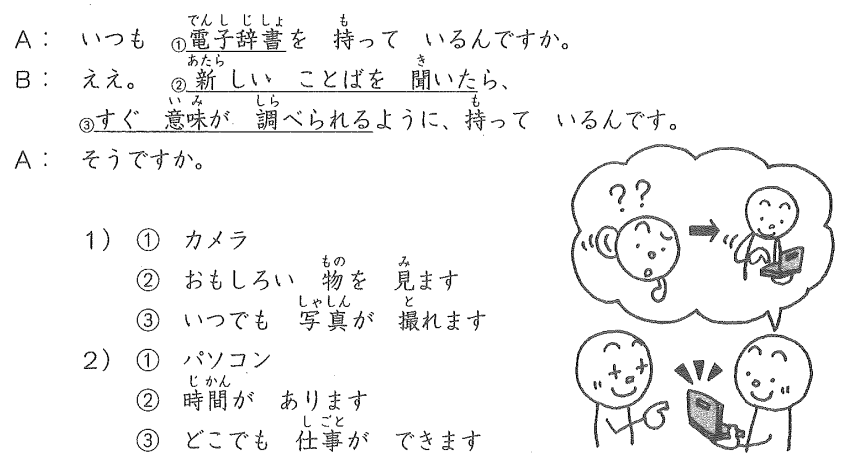 でんしじしょ も
A： いつも ①電子辞書を 持って いるんですか。
あたら き
B： ええ。 ②新しい ことばを 聞いたら、
いみ しら も
③すぐ 意味が 調べられるように、持って いるんです。
A： そうですか。
??
1) ① カメラ
もの み
② おもしろい 物を 見ます
しゃしん と
③ いつでも 写真が 撮れます
2) ① パソコン
じかん
② 時間が あります
しごと
③ どこでも 仕事が できます